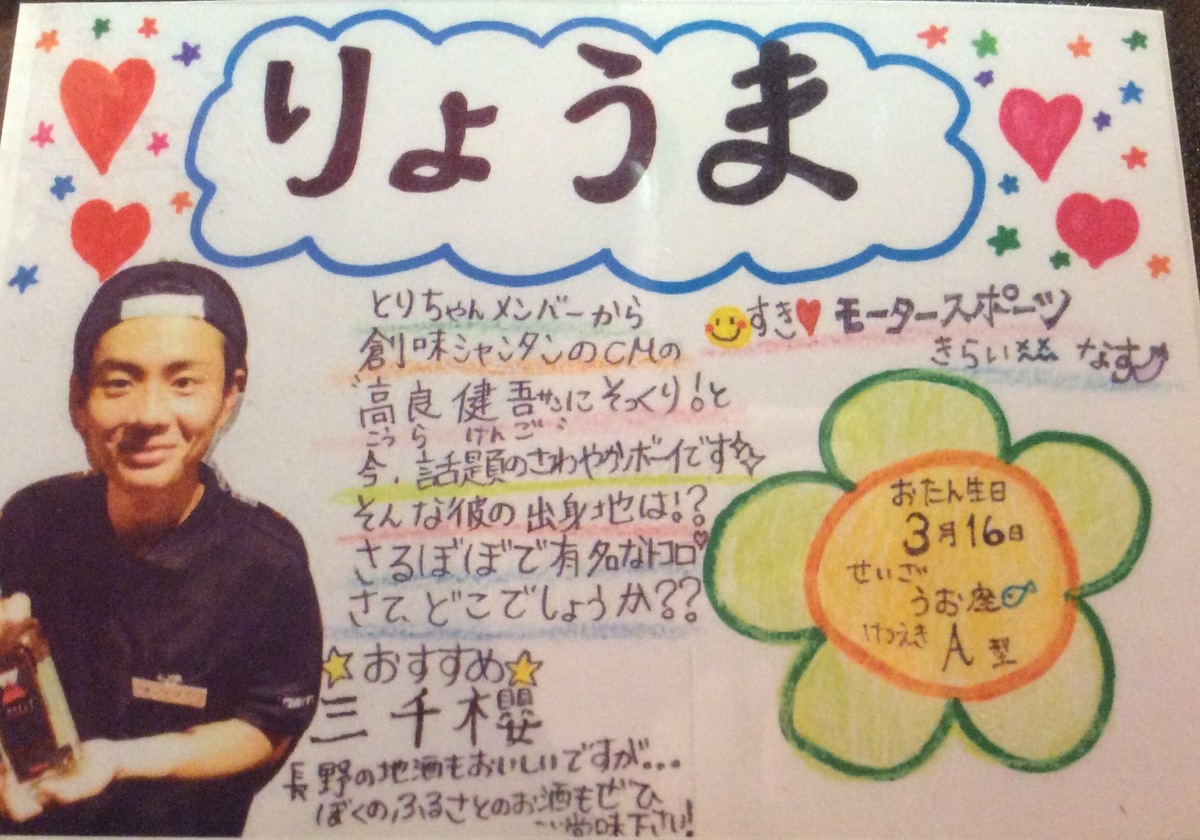 りょうま
とりちゃんメンバーから
創味シャンタンのCMの
"高良健吾さんにそっくり!と
こうら けんご"
今、話題のさわやかボーイです☆☆
そんな彼の出身地は!?
さるぼぼで有名なトコロ♡
さて、どこでしょうか??
すき♥ モータースポーツ
きらい なす
おたん生日
3月16日
せいざ
うお座
けつえき
A型
☆おすすめ☆
三千櫻
長野の地酒もおいしいですが...
ぼくのふるさとのお酒もぜひ
ご賞味下さい!